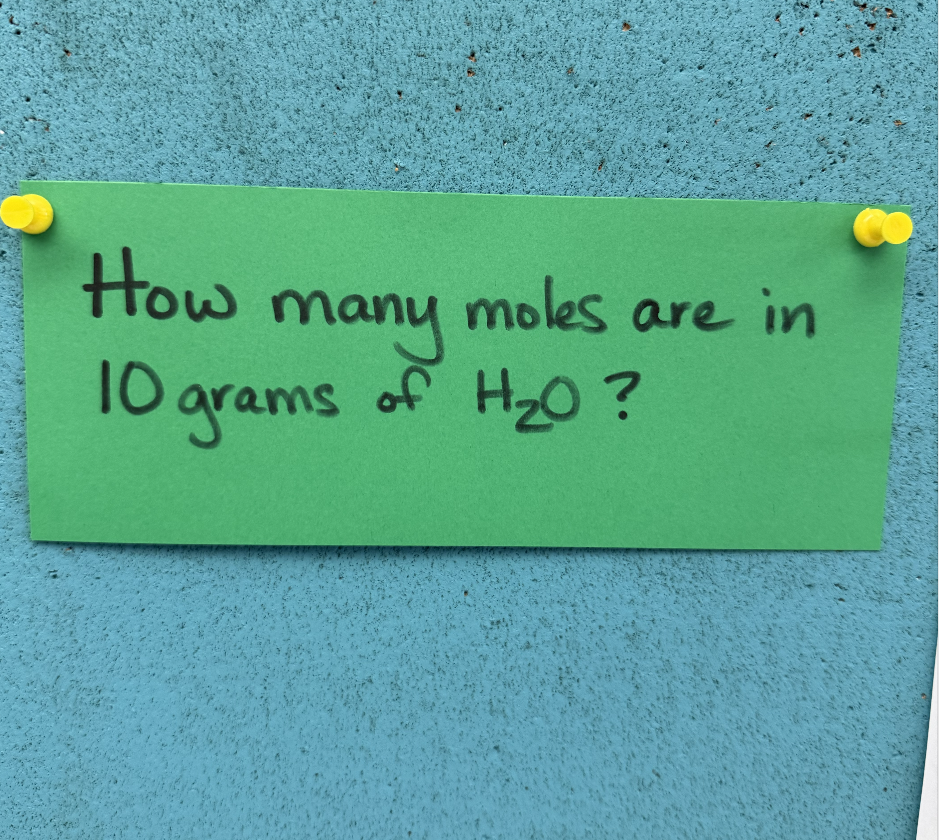 How many moles are in
10 grams of H₂O?